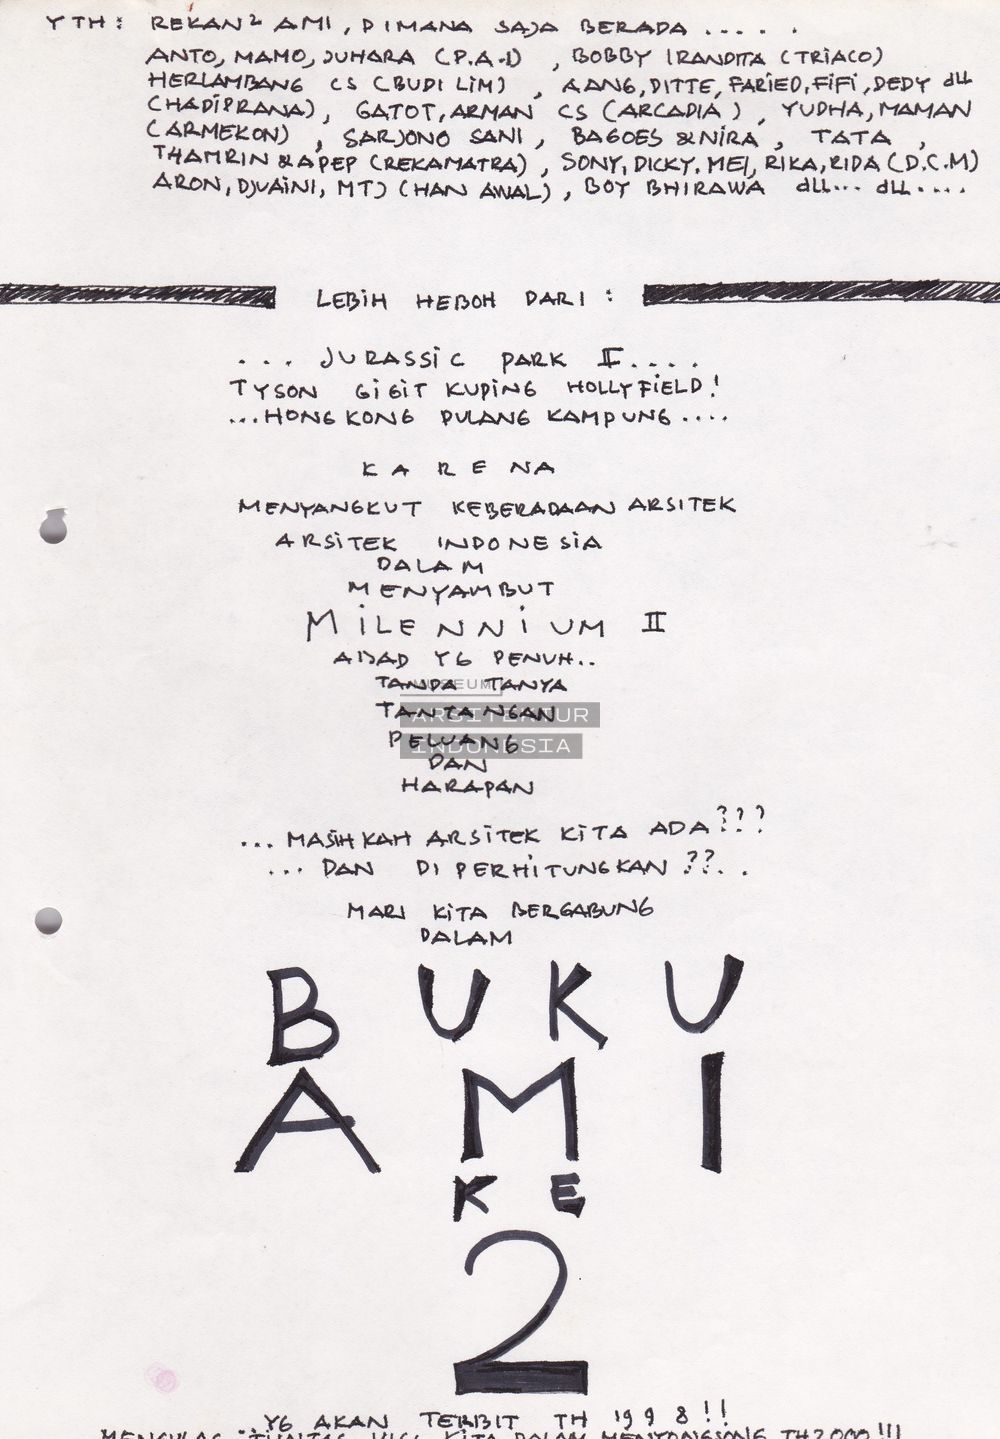 YTH : REKAN² AMI, DIMANA SAJA BERADA .....
ANTO, MAMO, JUHARA (P.A.I) , BOBBY IRANDITA (TRIACO)
HERLAMBANG CS (BUDI LIM) , AANG, DITTE, FARIED, FIFI, DEDY dLL
(HADIPRANA), GATOT, ARMAN CS (ARCADIA) , YUDHA, MAMAN
(ARMEKON) , SARJONO SANI, BAGOES & NIRA, TATA ,
THAMRIN & APEP (REKAMATRA), SONY, DICKY, MEI, RIKA, RIDA (D.C.M)
ARON, DJUAINI, MTJ (HAN AWAL), BOY BHIRAWA dLL... dLL....
LEBIH HEBOH DARI :
... JURASSIC PARK II ....
TYSON GIGIT KUPING HOLLYFIELD!
...HONGKONG PULANG KAMPUNG....
KARENA
MENYANGKUT KEBERADAAN ARSITEK
ARSITEK INDONESIA
DALAM
MENYAMBUT
MILENNIUM II
ABAD YG PENUH..
TANDA TANYA
MUSEUM
TANTANGAN
ARSITEKTUR
PELUANG
INDONESIA
DAN
HARAPAN
... MASIHKAH ARSITEK KITA ADA???
... DAN DI PERHITUNGKAN ??..
MARI KITA BERGABUNG
DALAM
BUKU
AMI
KE
2
YG AKAN TERBIT TH 1998!!
KITA DALAM MENYONGSONG TH 2000!!!